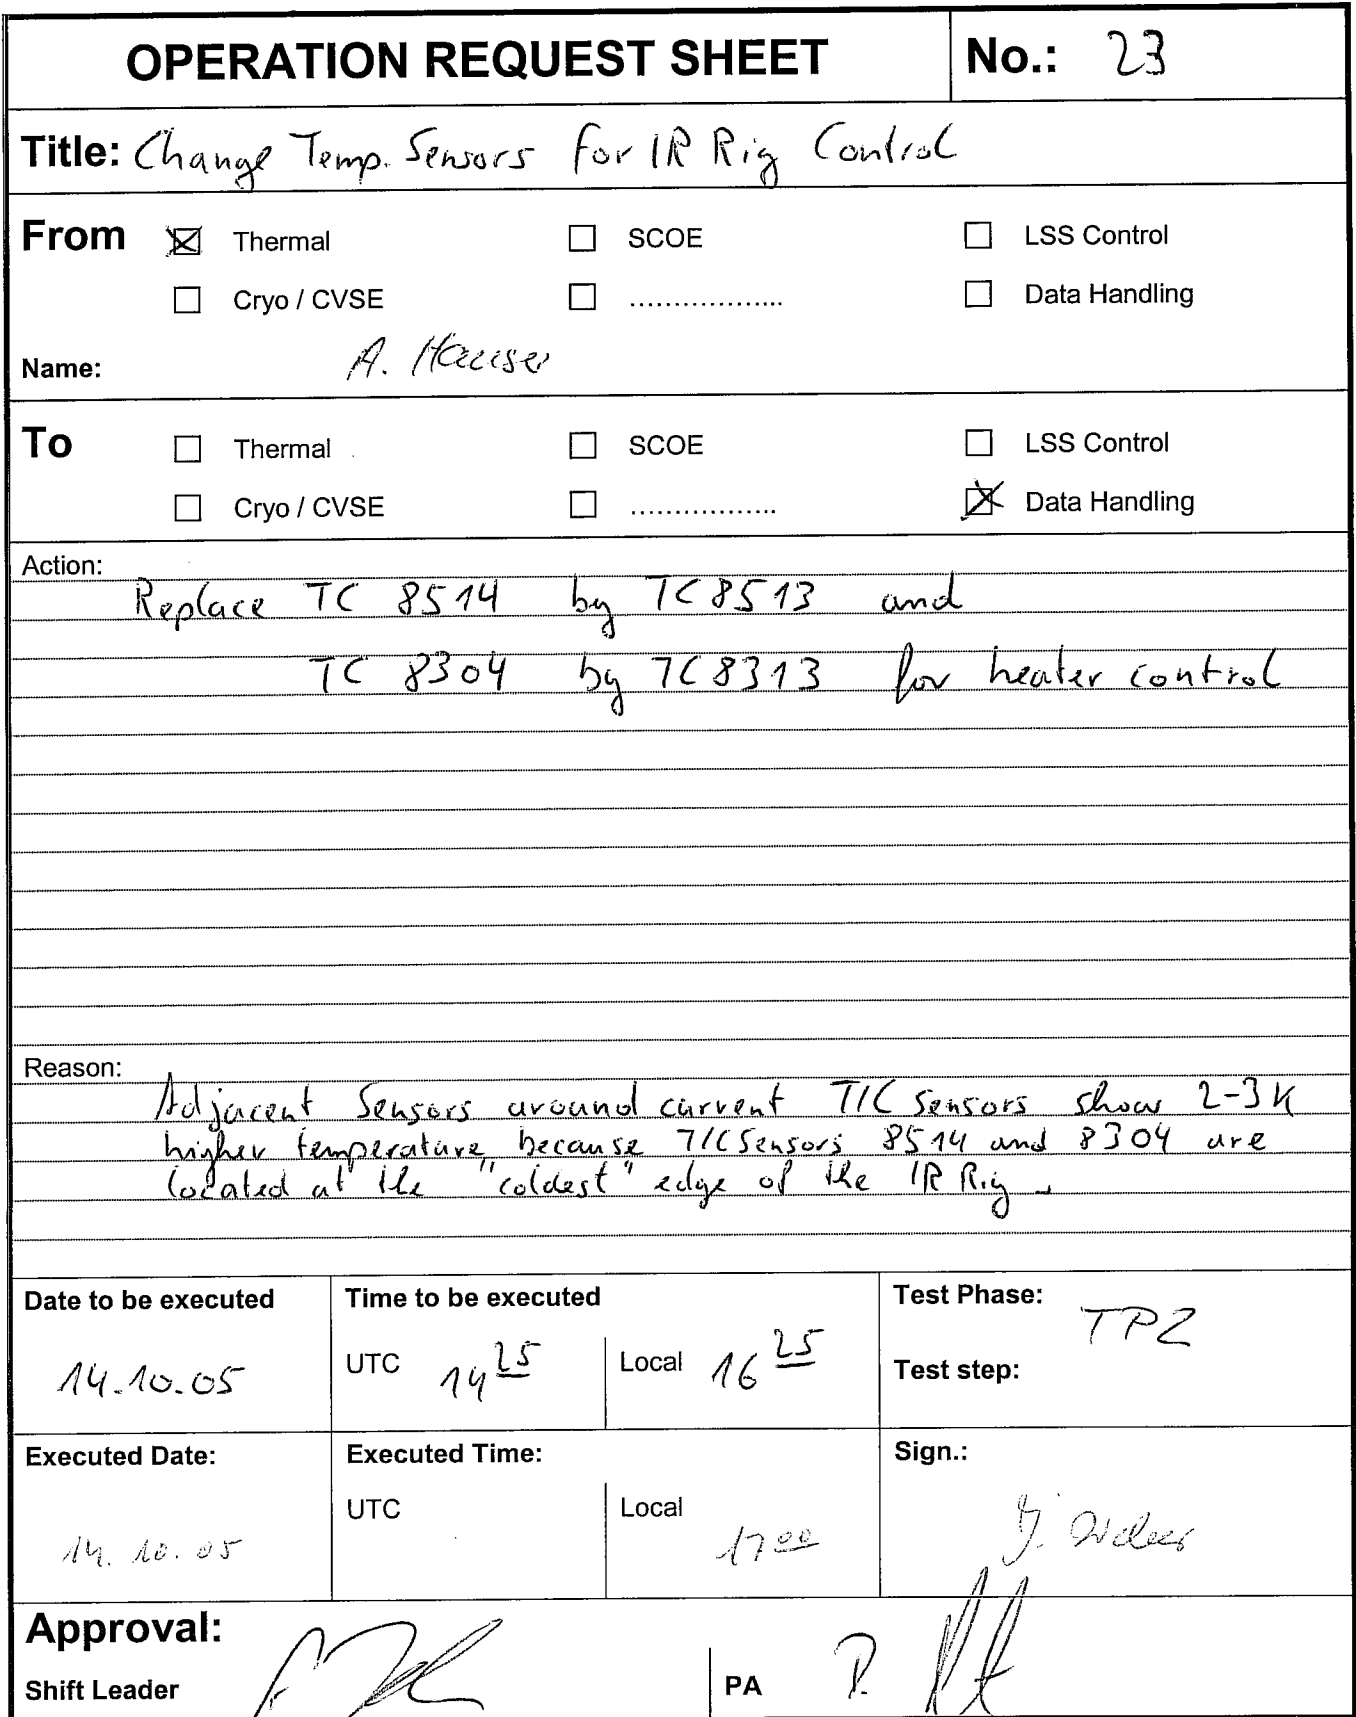 OPERATION REQUEST SHEET No.: 23
Title: Change Temp. Sensors for IR Rig Control
From Thermal SCOE LSS Control
Cryo / CVSE .................. Data Handling
Name: A. Hauser
To Thermal SCOE LSS Control
Cryo / CVSE ................. Data Handling
Action:
Replace TC 8514 by TC8513 and
TC 8304 by TC8313 for heater control
Reason:
Adjacent Sensors around current T/C sensors show 2-3K
higher temperature because T/C Sensors 8514 and 8304 are
located at the "coldest" edge of the IR Rig.
Date to be executed Time to be executed Test Phase: TP2
14.10.05 UTC 14 25 Local 16 25 Test step:
Executed Date: Executed Time: Sign.:
14.10.05 UTC Local 17 00
Approval:
Shift Leader PA